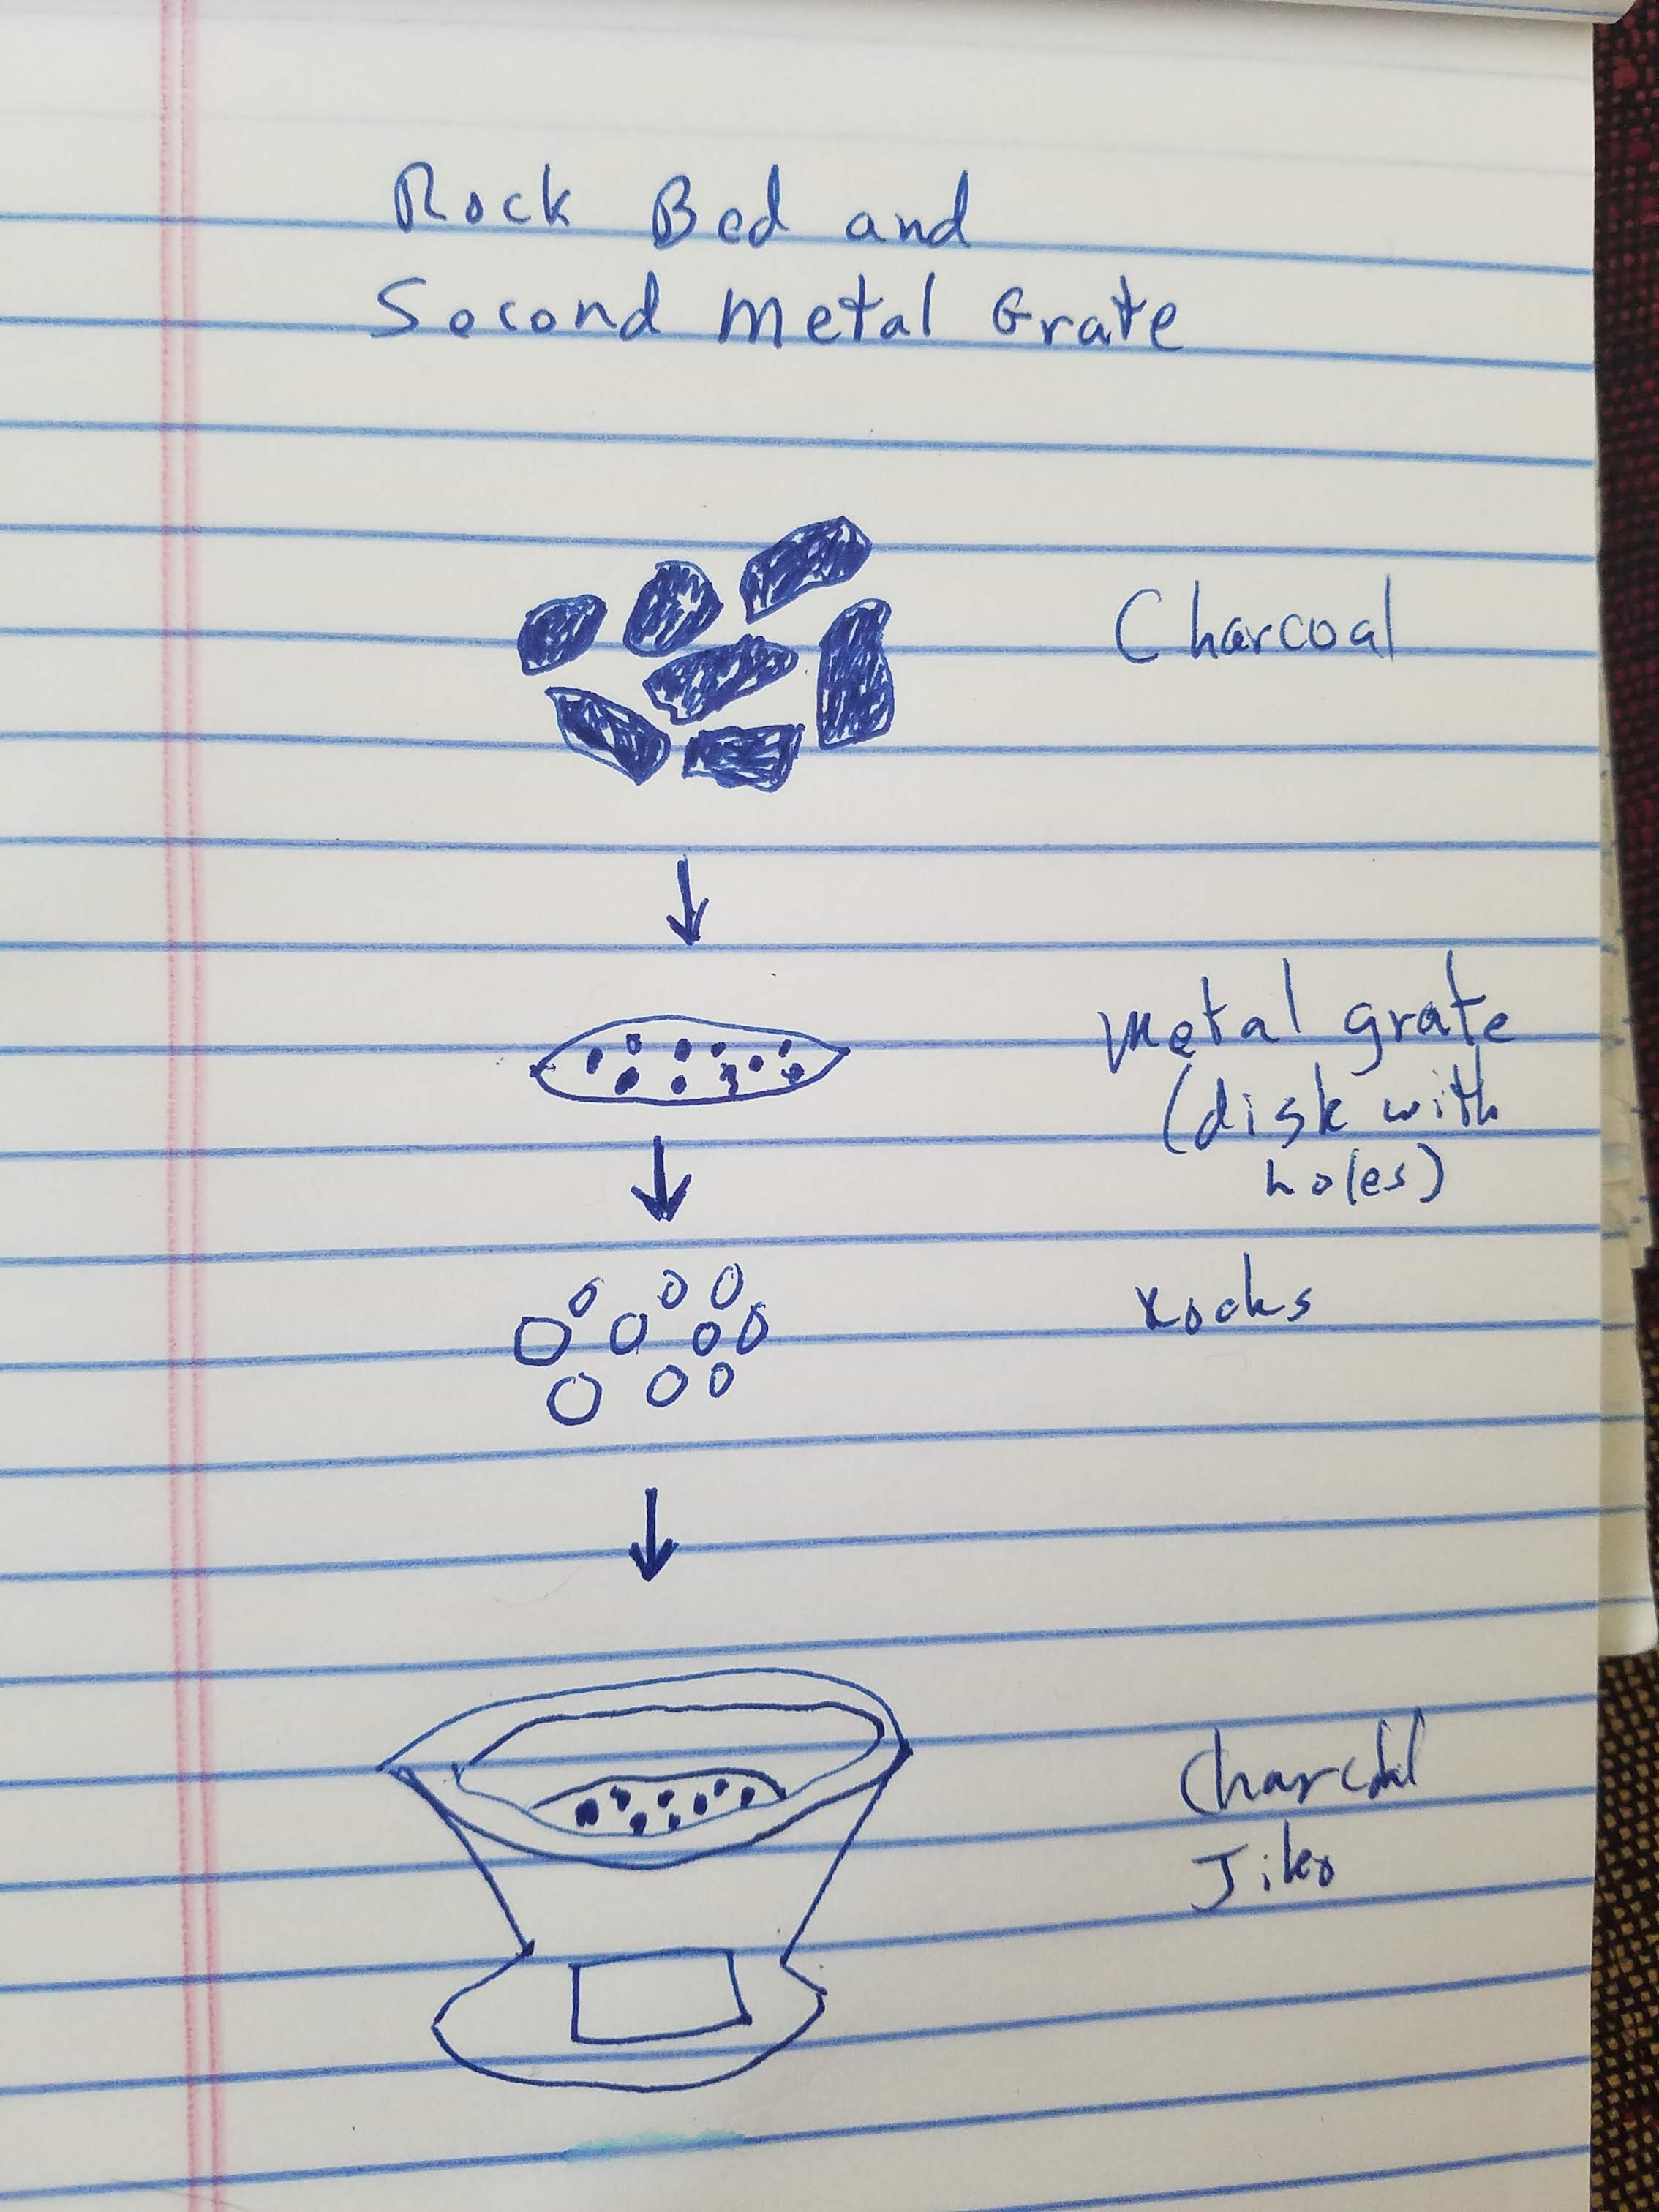 Rock Bed and
Second Metal Grate
Charcoal
Metal grate
(disk with
holes)
rocks
Charcoal
Jiko